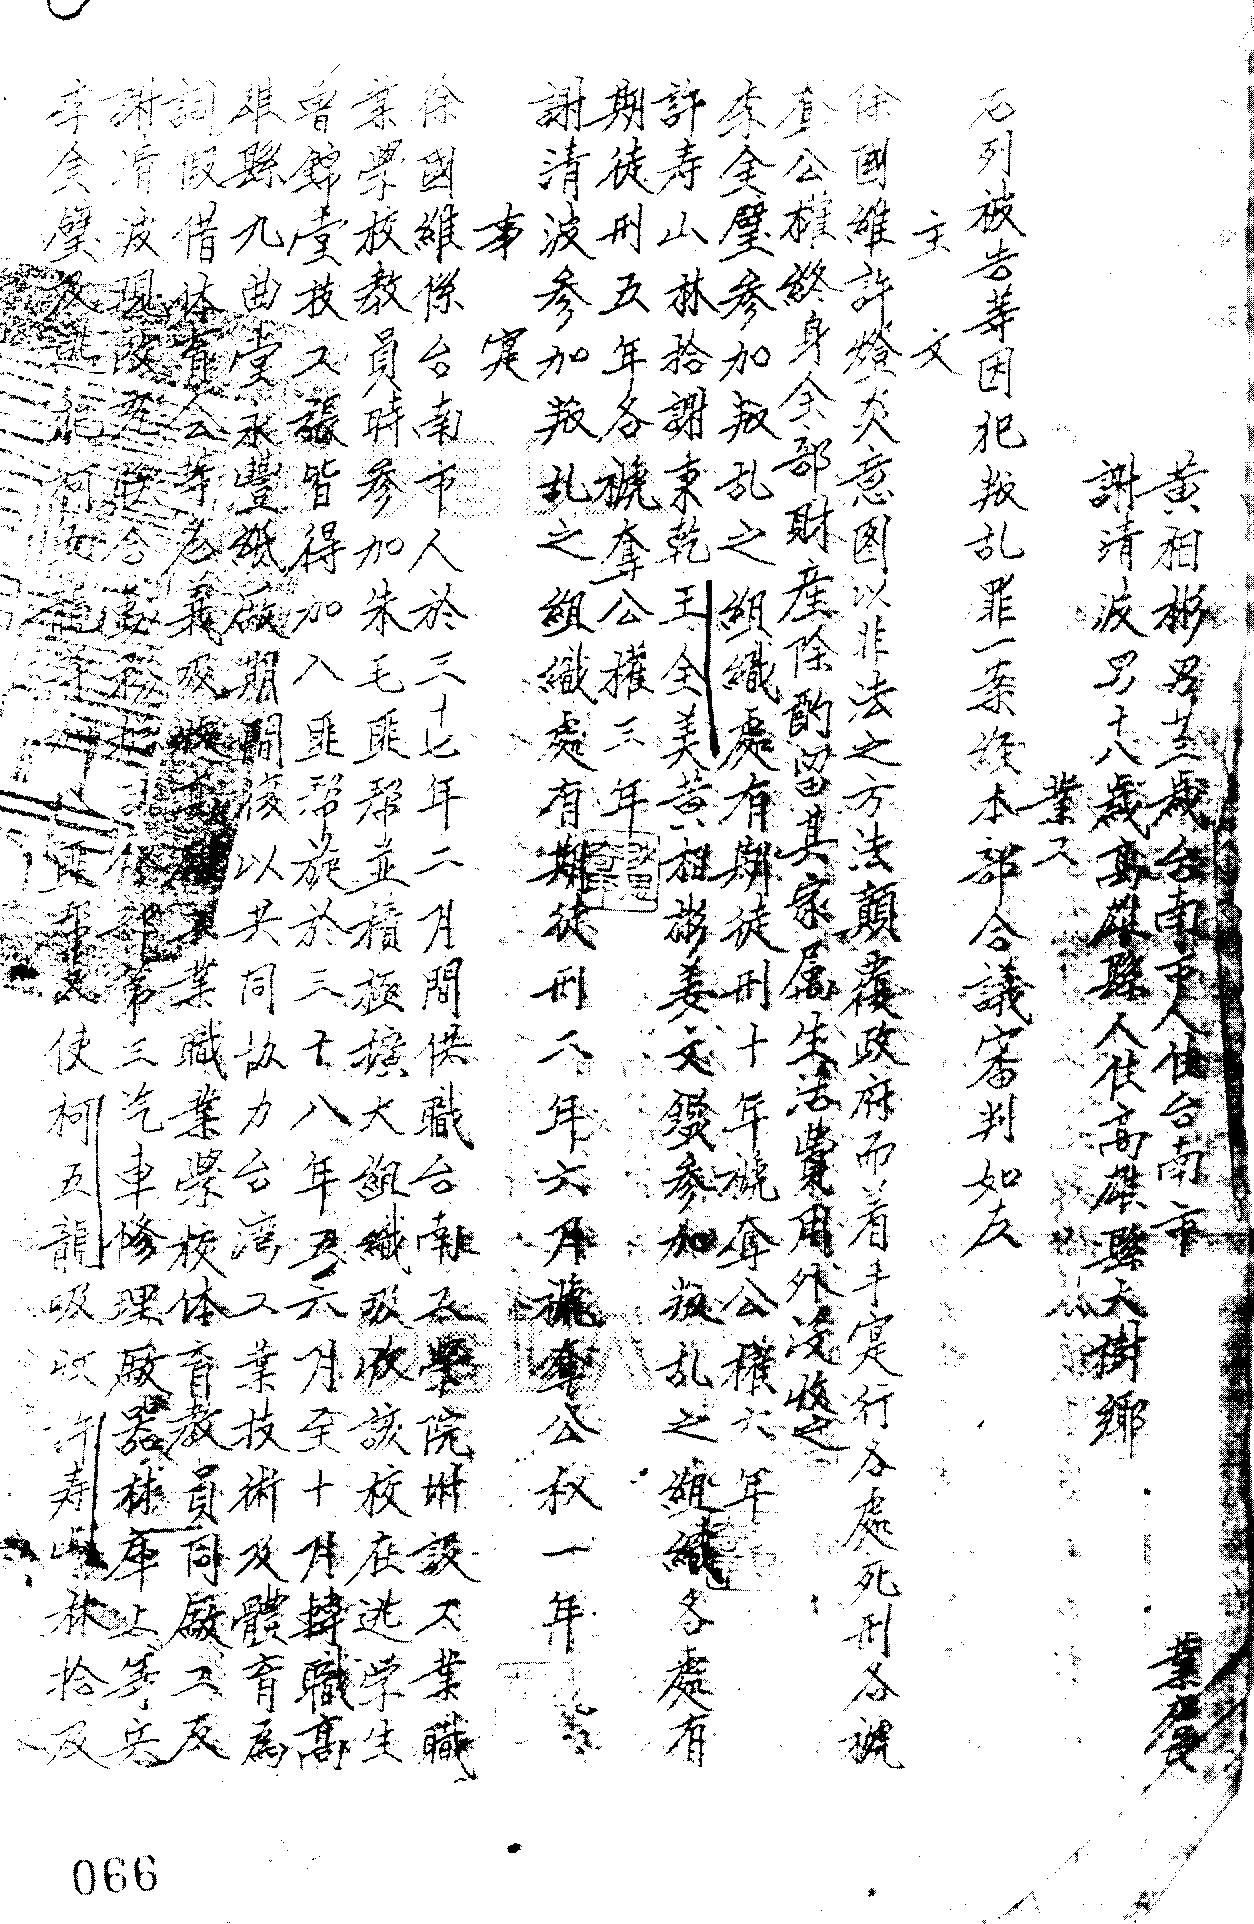 黄相彬男　歲台南市人住台南市　業農
謝清波男十八歲高雄縣人住高雄縣大樹鄉
業工
右列被告等因犯叛乱罪一案經本部合議審判如左
主文
徐國維許燈炎意图以非法之方法顛覆政府而着手实行各處死刑各褫
奪公權終身全部財産除酌留其家屬生活費用外没收之
李全璧参加叛乱之組織處有期徒刑十年褫奪公權六年
許寿山林拾謝東乾王全美黄相彬姜文鑑参加叛乱之組織各處有
期徒刑五年各褫奪公權三年
謝清波参加叛乱之組織處有期徒刑二年六月褫奪公权一年
事实
徐國維係台南市人於三十七年二月間供職台南工學院附設工業職
業學校教員時参加朱毛匪帮並積極擴大組織吸收該校在逃学生
曾錦堂技工張皆得加入匪帮旋於三十八年五六月至十月轉職高
雄縣九曲堂永豐紙廠期間後以共同協力台湾工業技術及體育為
詞假借体育会等名義吸收　　　工業職業學校体育教員同廠工友
謝清波現改充联合勤務　　　部第三汽車修理廠器材庫上等兵
李全璧及逃犯柯　　等　入匪帮又使柯五龍吸收许寿山林拾及
066